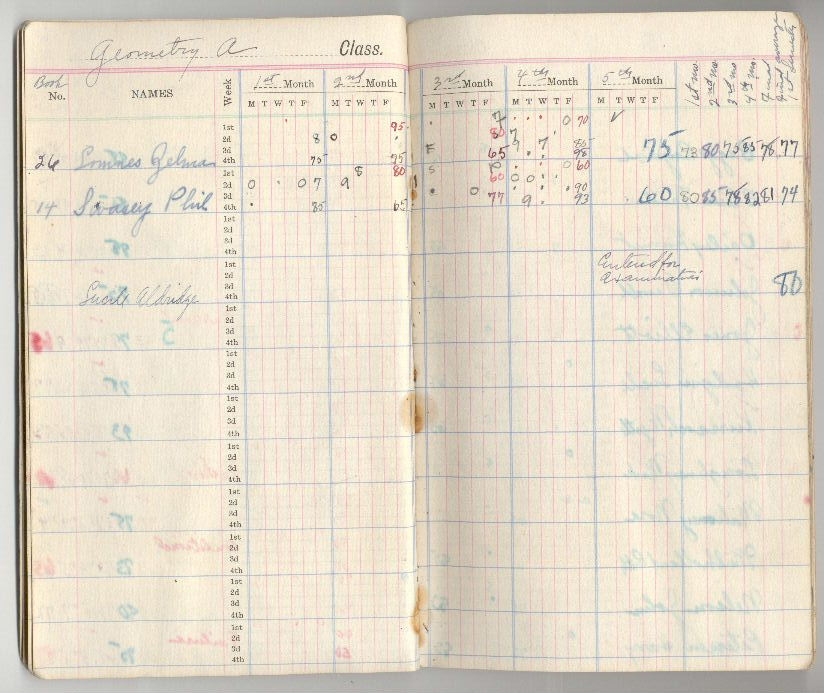 Geometry A Class.
Book No. NAMES Week 1st Month 2nd Month 3rd Month 4th Month 5th Month 1st mo. 2nd mo. 3rd mo. 4th mo. Final
M T W T F M T W T F M T W T F M T W T F M T W T F
1st 95 7 0 70
2d 8 0 80 7
3d F 7 85
26 4th 75 75 65 98 75 73 80 75 85 78 77
1st 8 80 S 0 60
2d 0 0 7 9 60 0 0
3d 0 90
14 Swasey Phil 4th 85 65 77 9 93 60 80 85 78 82 81 74
1st
2d
3d
4th
1st Entered for
2d Examination
3d
Lucile Aldridge 4th 80
1st
2d
3d
4th
1st
2d
3d
4th
1st
2d
3d
4th
1st
2d
3d
4th
1st
2d
3d
4th
1st
2d
3d
4th
1st
2d
3d
4th
1st
2d
3d
4th